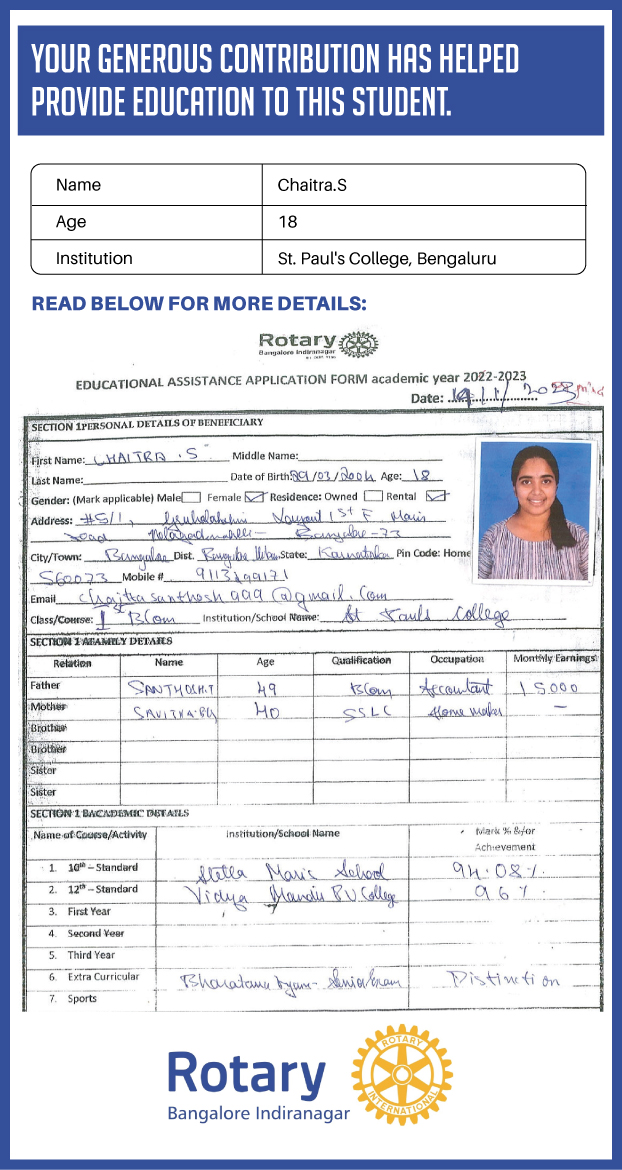 YOUR GENEROUS CONTRIBUTION HAS HELPED
PROVIDE EDUCATION TO THIS STUDENT.
Name Chaitra.S
Age 18
Institution St. Paul's College, Bengaluru
READ BELOW FOR MORE DETAILS:
Rotary
Bangalore Indiranagar
EDUCATIONAL ASSISTANCE APPLICATION FORM academic year 2022-2023
Date:
SECTION 1PERSONAL DETAILS OF BENEFICIARY
First Name: CHAITRA .S Middle Name:
Last Name: Date of Birth: 29/03/2004 Age: 18
Gender: (Mark applicable) Male Female Residence: Owned Rental
Address: #5/1, 1st F Main
road Bangalore-73
City/Town: Bangalore Dist. Bangalore Urban State: Karnataka Pin Code: Home
560073 Mobile #
Email chaitrasanthosh999@gmail.com
Class/Course: I BCom Institution/School Name: St Pauls College
SECTION 1 AFAMILY DETAILS
Relation Name Age Qualification Occupation Monthly Earnings
Father SANTHOSH.T 49 BCom Accountant 15000
Mother 40 SSLC Home maker –
Brother
Brother
Sister
Sister
SECTION 1 BACADEMIC DETAILS
Name of Course/Activity Institution/School Name Mark % &/or
Achievement
1. 10th – Standard Stella Maris School 94.08%.
2. 12th – Standard Vidya Mandir P.U. College 96%.
3. First Year
4. Second Year
5. Third Year
6. Extra Curricular Bharatanatyam- Senior Exam Distinction
7. Sports
Rotary
Bangalore Indiranagar
ROTARY
INTERNATIONAL